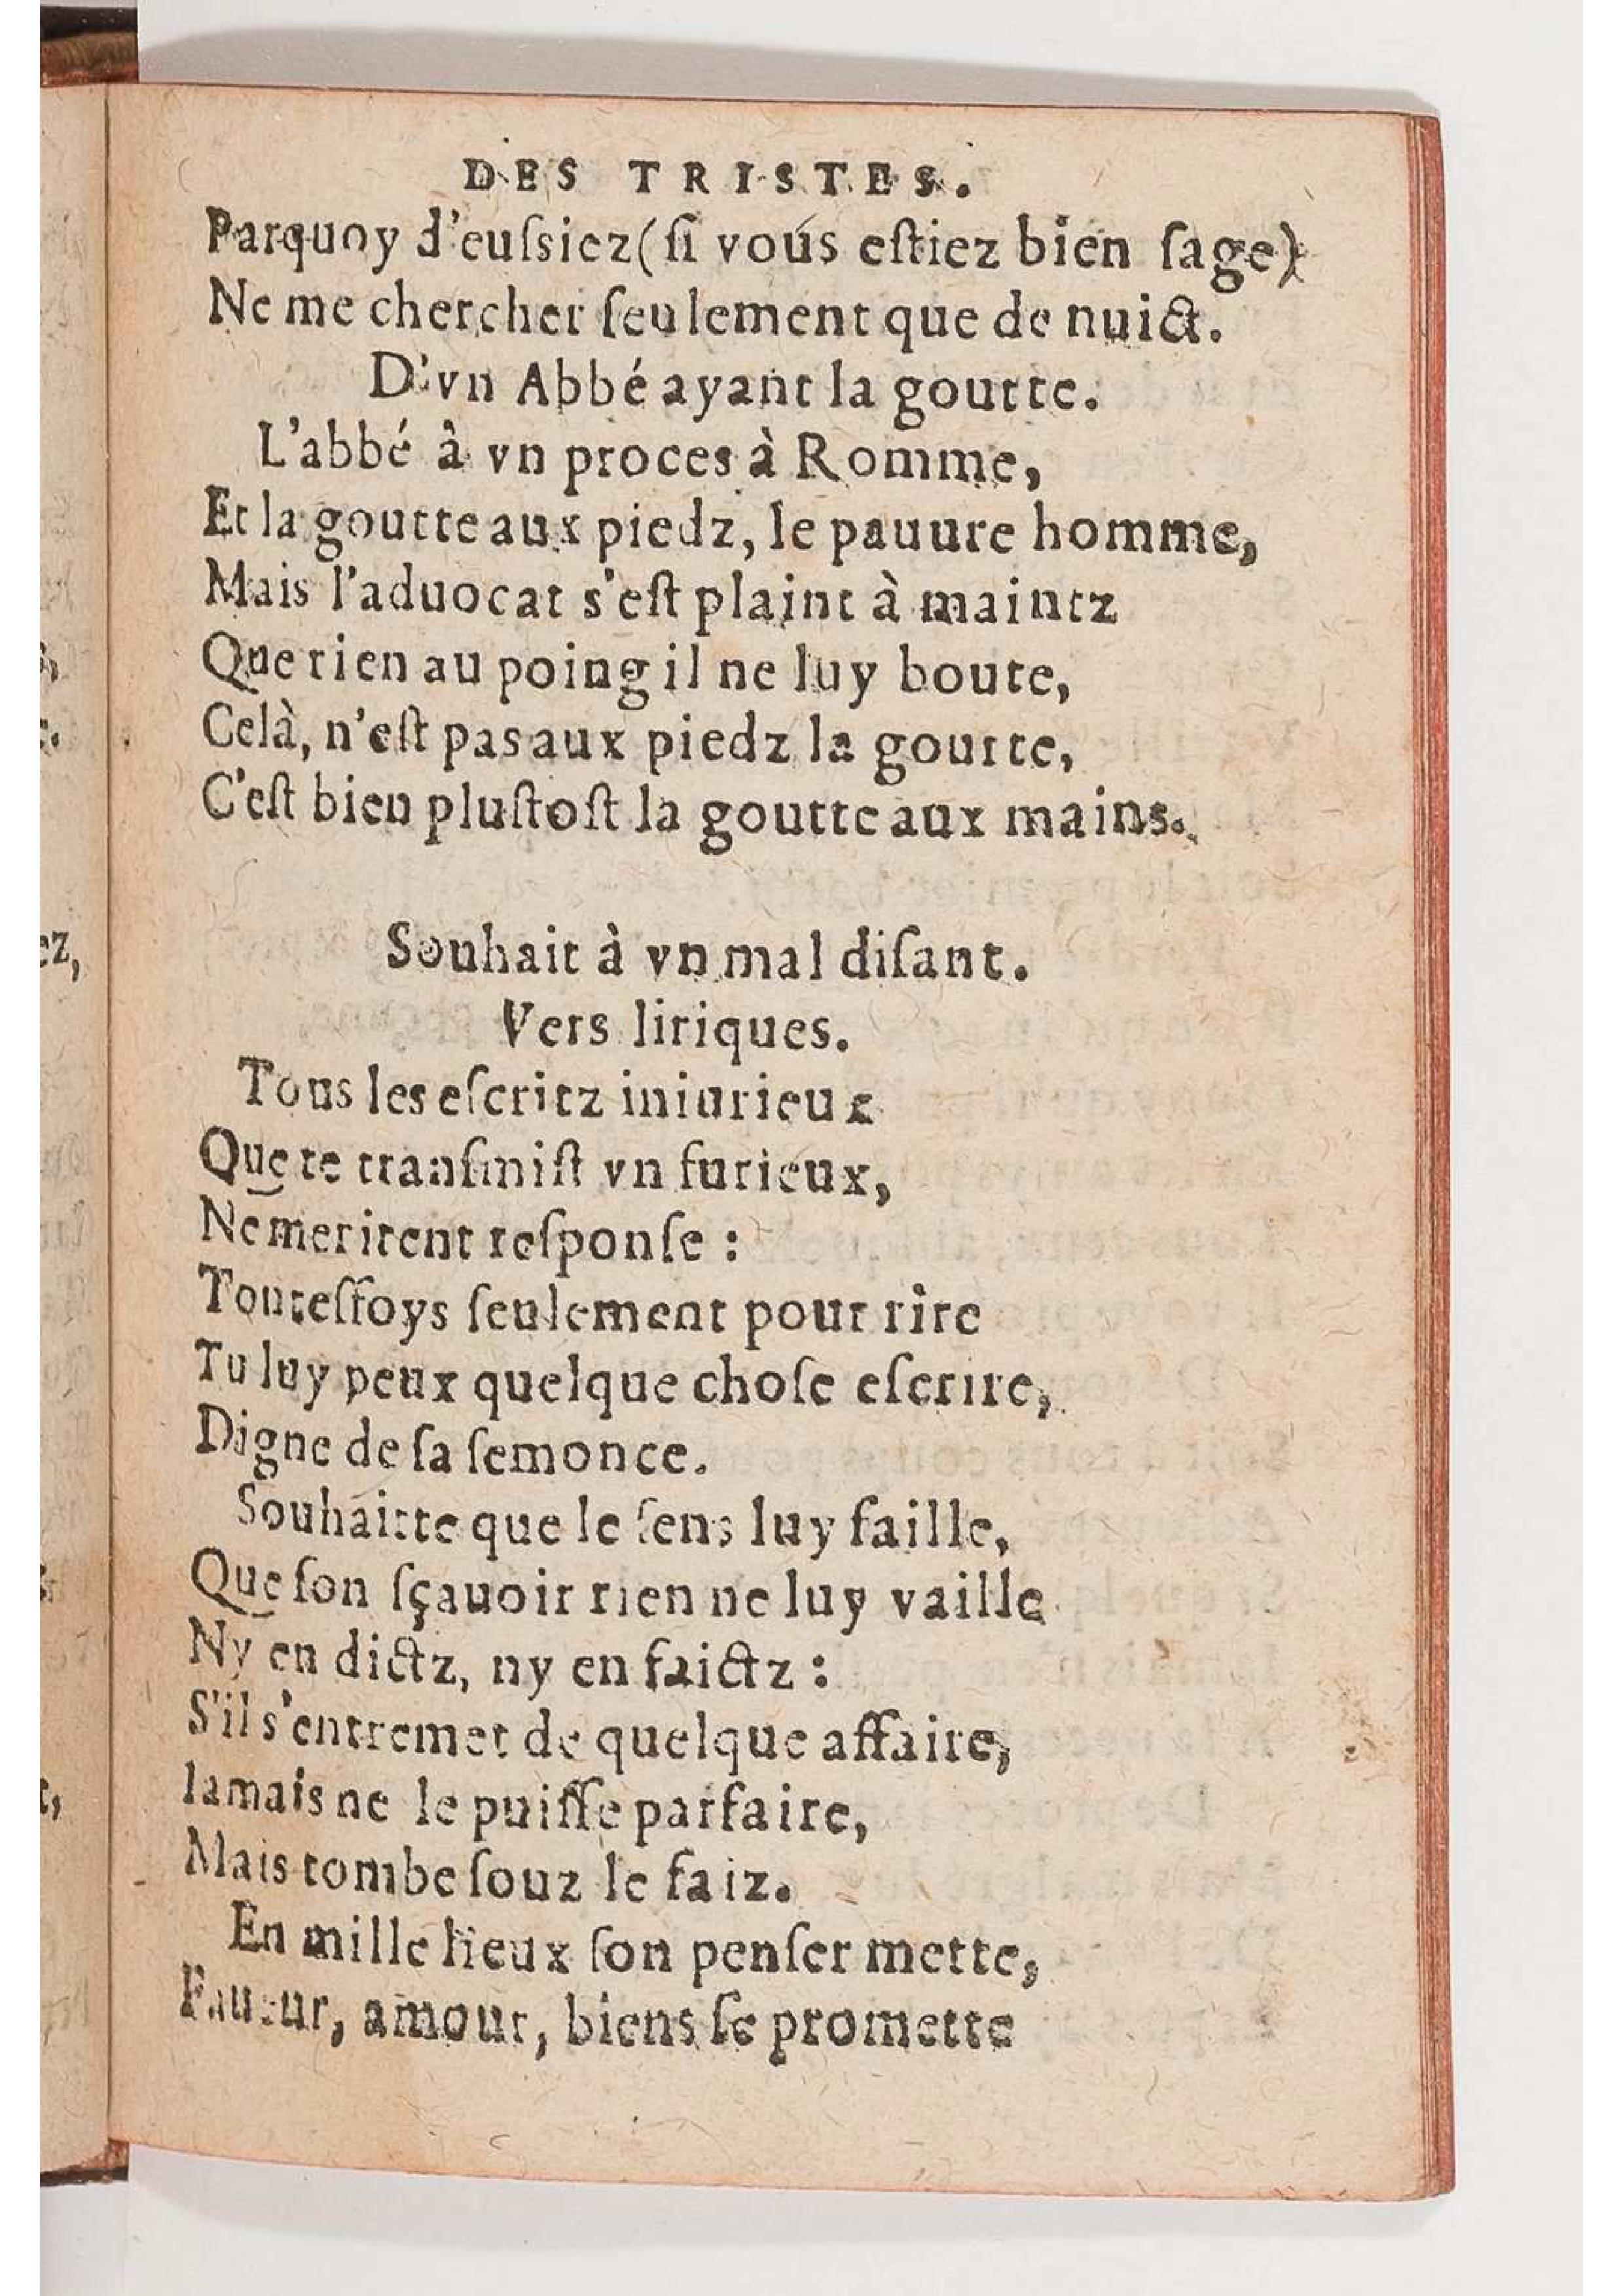 DES TRISTES.
Parquoy d'eussiez (si vous estiez bien sage)
Ne me chercher seulement que de nuict.
D'vn Abbé ayant la goutte.
L'abbé â vn proces à Romme,
Et la goutte aux piedz, le pauure homme,
Mais l'aduocat s'est plaint à maintz
Que rien au poing il ne luy boute,
Celà, n'est pas aux piedz la goutte,
C'est bien plustost la goutte aux mains.
Souhait à vn mal disant.
Vers liriques.
Tous les escritz iniurieux
Que te transmist vn furieux,
Ne meritent response :
Toutesfoys seulement pour rire
Tu luy peux quelque chose escrire,
Digne de sa semonce.
Souhaitte que le sens luy faille,
Que son sçauoir rien ne luy vaille
Ny en dictz, ny en faictz :
S'il s'entremet de quelque affaire,
Iamais ne le puisse parfaire,
Mais tombe souz le faiz.
En mille lieux son penser mette,
Faueur, amour, biens se promette
ez,